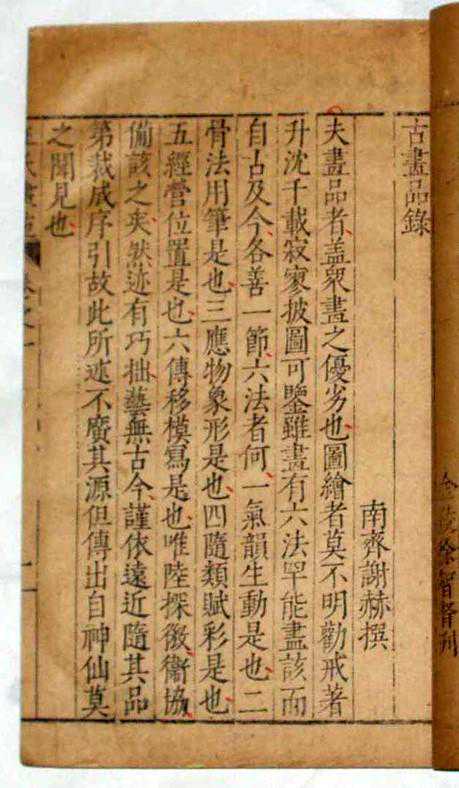 古畫品錄
南齊謝赫撰
夫畫品者盖衆畫之優劣也圖繪者莫不明勸戒著
升沈千載寂寥披圖可鑒雖畫有六法罕能盡該而
自古及今各善一節六法者何一氣韻生動是也二
骨法用筆是也三應物象形是也四隨類賦彩是也
五經營位置是也六傳移模寫是也唯陸探微衛協
備該之矣然迹有巧拙藝無古今謹依遠近隨其品
第裁成序引故此所述不廣其源但傳出自神仙莫
之聞見也
王氏畫苑 卷之一 一
金陵徐智督刋